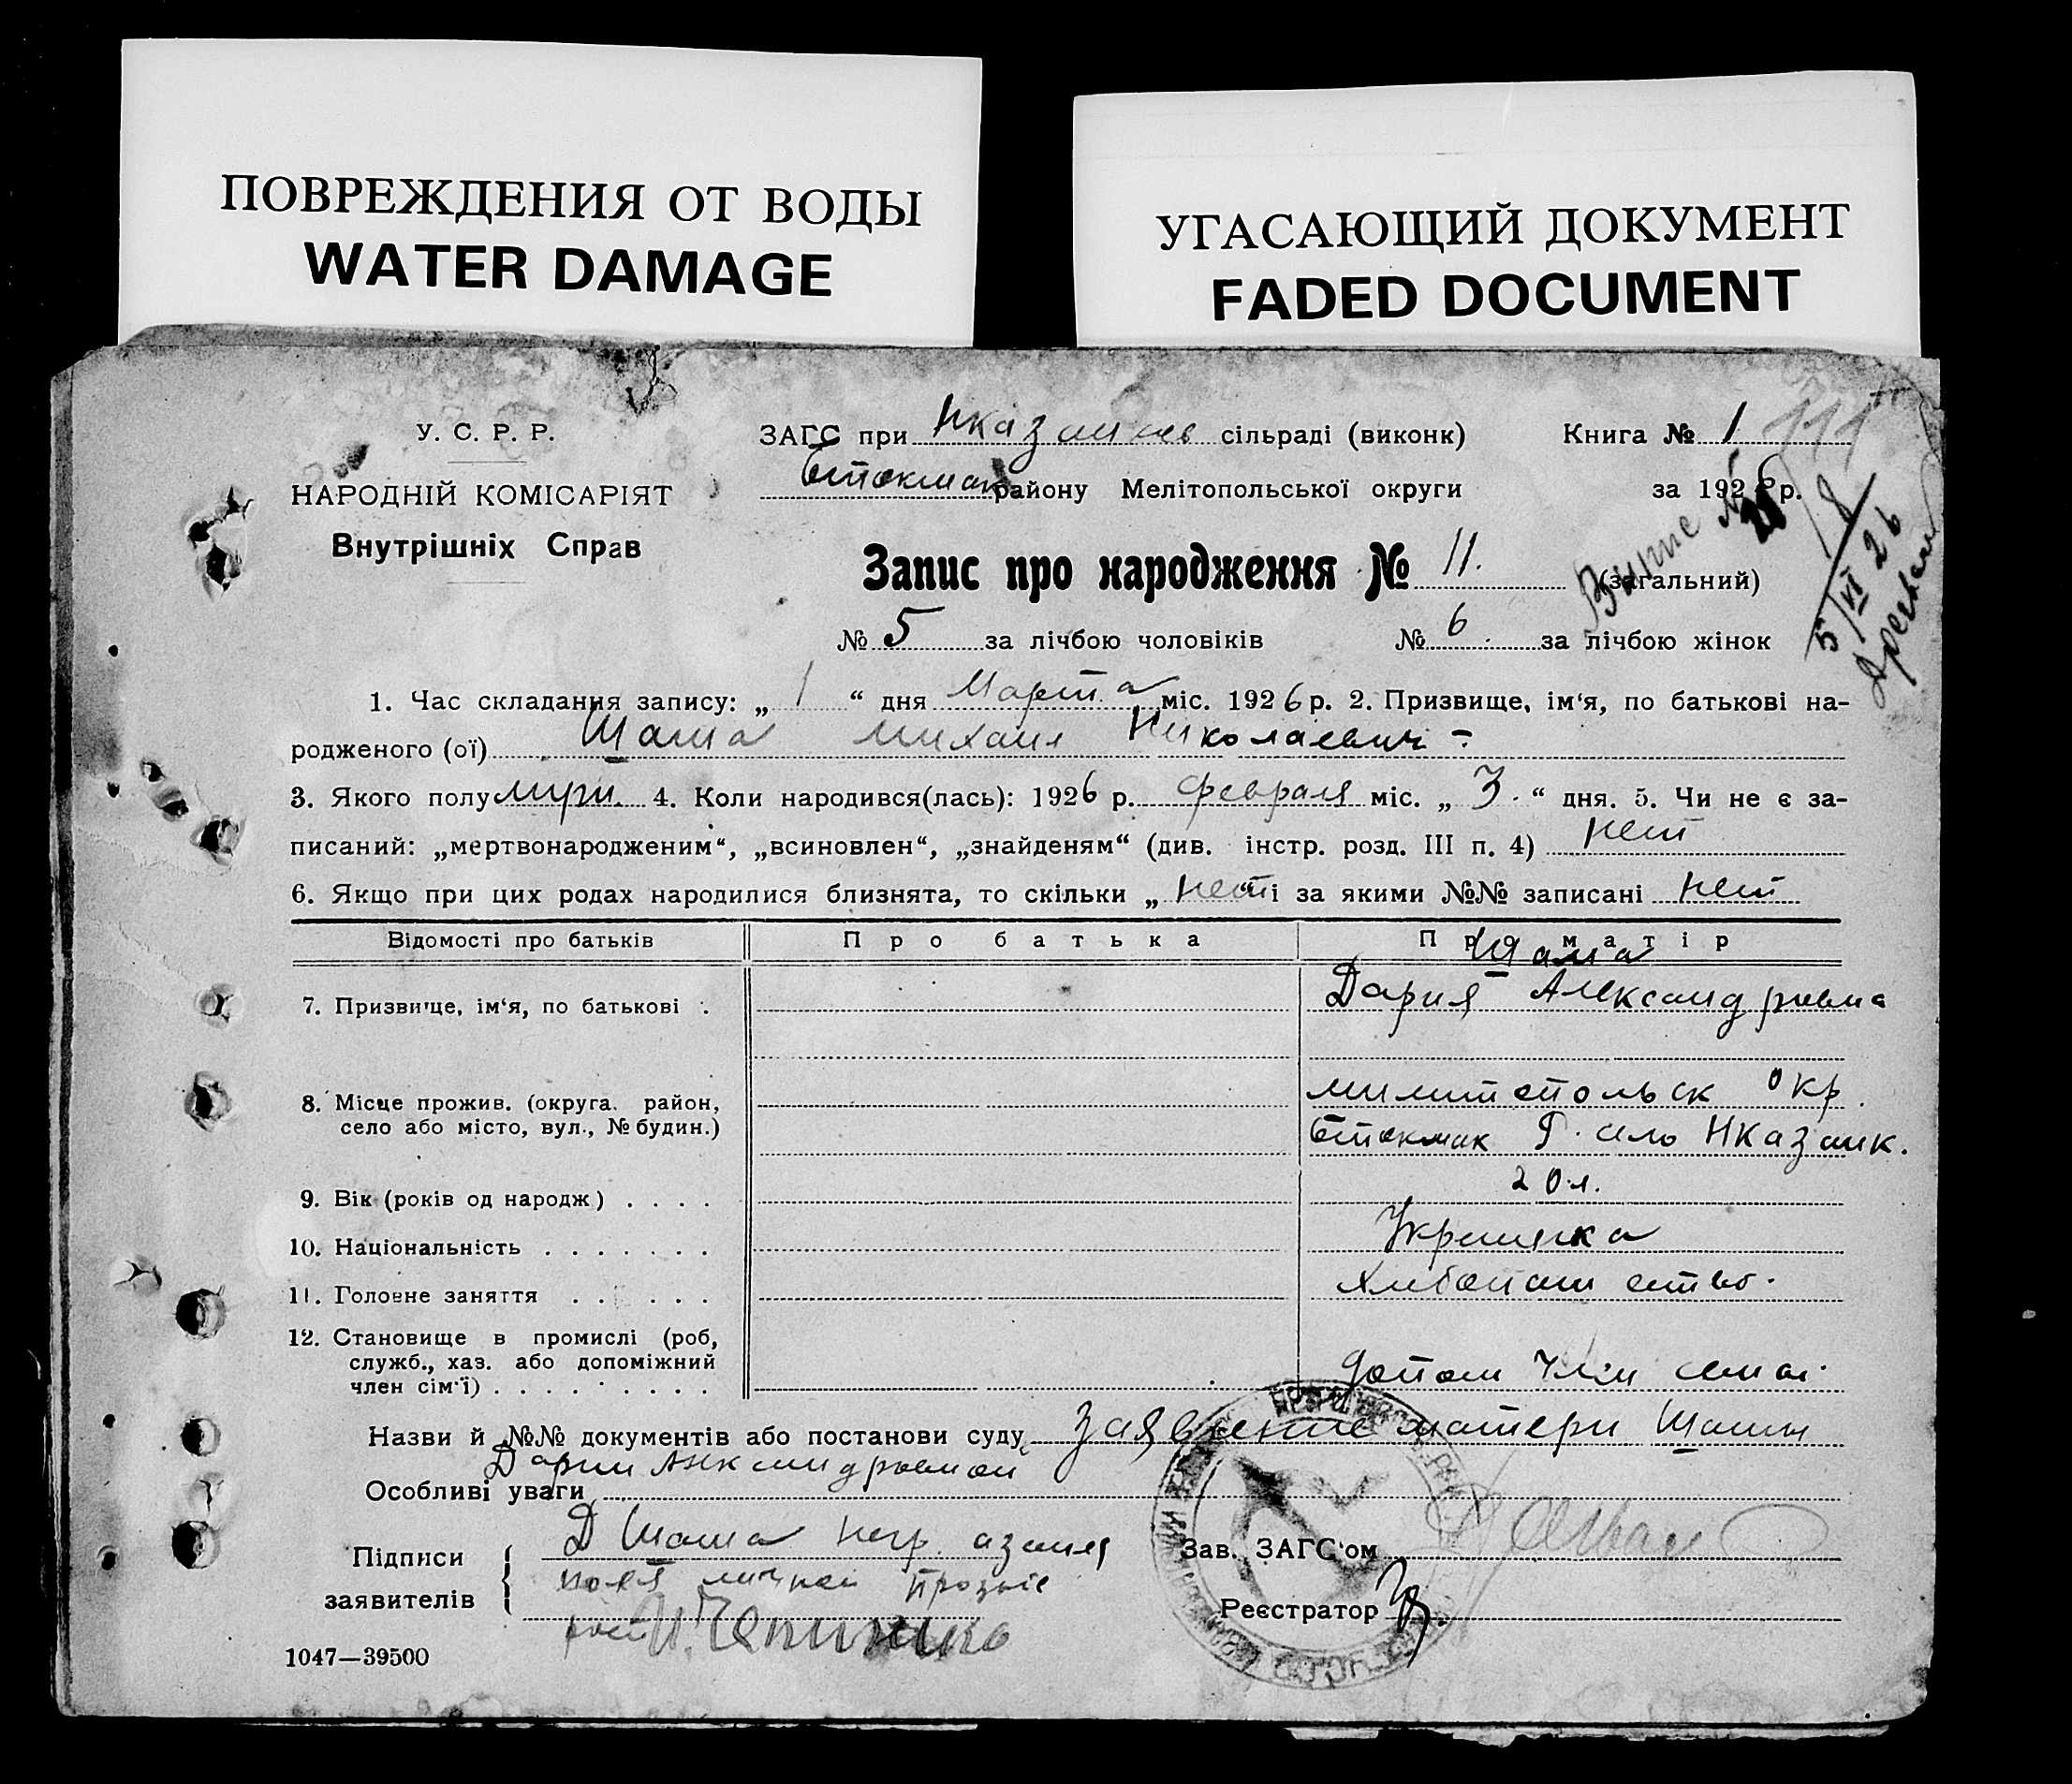 ПОВРЕЖДЕНИЯ ОТ ВОДЫ
WATER DAMAGE
УГАСАЮЩИЙ ДОКУМЕНТ
FADED DOCUMENT
У. С. Р. Р.
НАРОДНІЙ КОМІСАРІЯТ
Внутрішніх Справ
ЗАГС при сільраді (виконк)
району Мелітопольської округи
Книга № 1
за 1926 р.
Запис про народження № 11. (загальний)
№ 5 за лічбою чоловіків № 6. за лічбою жінок
5/VI 26
1. Час складання запису: „ 1 “ дня Марта міс. 1926 р. 2. Призвище, ім‘я, по батькові на-
родженого (ої) Шама Михаил Николаевич
3. Якого полу 4. Коли народився(лась): 1926 р. февраля міс. „ 3. “ дня. 5. Чи не є за-
писаний: „мертвонародженим“, „всиновлен“, „знайденям“ (див. інстр. розд. III п. 4) нет
6. Якщо при цих родах народилися близнята, то скільки „ нет і за якими №№ записані нет
Відомості про батьків Про батька Про матір
Шама
7. Призвище, ім‘я, по батькові . Дария Александровна
8. Місце прожив. (округа. район,
село або місто, вул., № будин.)
окр.
село
9. Вік (років од народж) . . . . 20 л.
10. Національність . . . . . . . Украинка
11. Головне заняття . . . . . .
12. Становище в промислі (роб,
служб., хаз. або допоміжний
член сім‘ї) . . . . . . . . .
допом член семьи
Назви й №№ документів або постанови суду заявление матери Шамы
Дарии Александровной
Особливі уваги
Підписи
заявителів
Д Шама негр.
личной
Зав. ЗАГС‘ом
Реєстратор
1047—39500